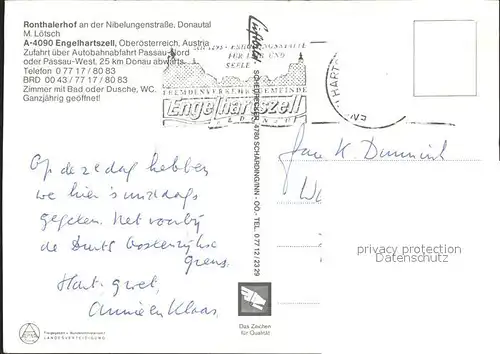 Ronthalerhof an der Nibelungenstraße, Donautal
M. Lötsch
A-4090 Engelhartszell, Oberösterreich, Austria
Zufahrt über Autobahnabfahrt Passau-Nord
oder Passau-West, 25 km Donau abwärts
Telefon 0 77 17 / 80 83
BRD 00 43 / 77 17 / 80 83
Zimmer mit Bad oder Dusche, WC.
Ganzjährig geöffnet!
FÜR LEIB UND
SEELE
FREMDENVERKEHRSGEMEINDE
Engelhartszell
SCHÄRDING/INN - OÖ. - TEL. 0 77 12 / 23 29
Op deze dag hebben
we hier 's middags
gegeten. Net voorbij
de Duits Oostenrijkse
grens.
Hart. groet,
Annie en Klaas.
privacy protection
Datenschutz
Das Zeichen
für Qualität
LANDESVERTEIDIGUNG